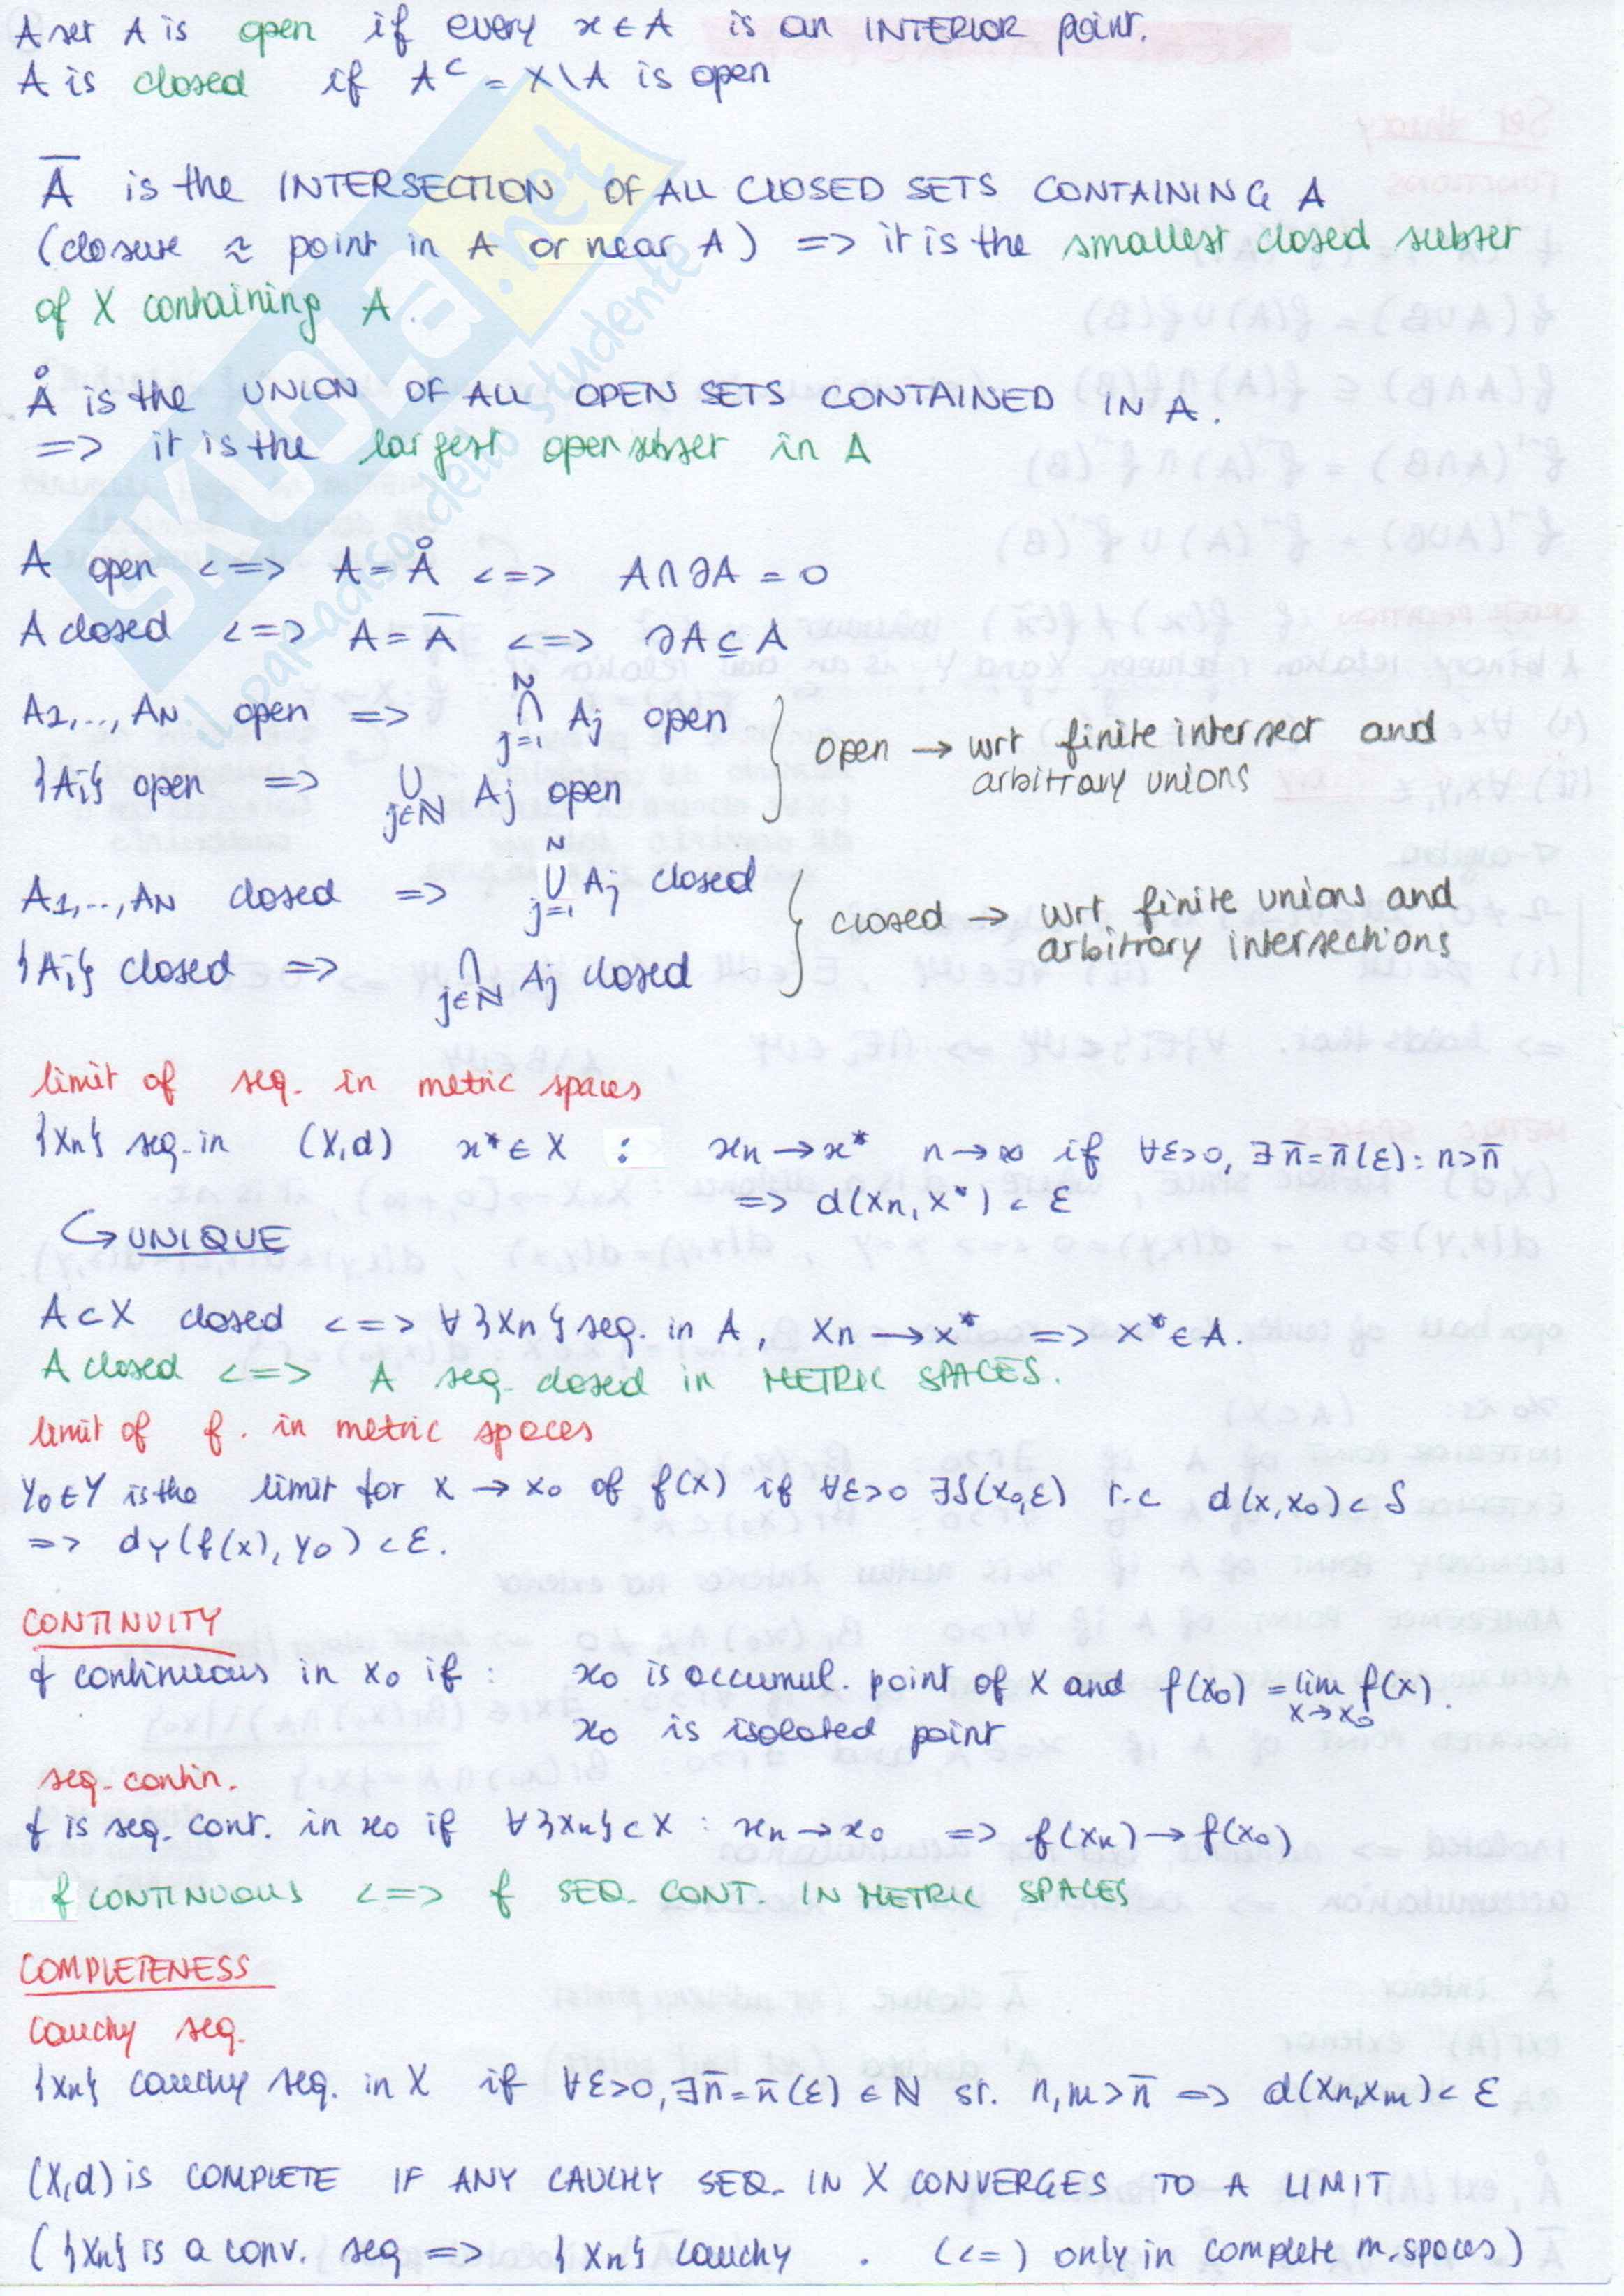 A set A is open if every x ∈ A is an INTERIOR point.
A is closed if Aᶜ = X\A is open
A̅ is the INTERSECTION OF ALL CLOSED SETS CONTAINING A
(closure ≈ point in A or near A) => it is the smallest closed subset
of X containing A.
Å is the UNION OF ALL OPEN SETS CONTAINED IN A.
=> it is the largest open subset in A
A open <=> A = Å <=> A∩∂A = 0
A closed <=> A = A̅ <=> ∂A ⊆ A
A1,..,AN open => ⋂_{j=1}^{N} Aj open
{Aj} open => ⋃_{j∈ℕ} Aj open
open → wrt finite intersect and
arbitrary unions
A1,..,AN closed => ⋃_{j=1}^{N} Aj closed
{Aj} closed => ⋂_{j∈ℕ} Aj closed
closed → wrt finite unions and
arbitrary intersections
limit of seq. in metric spaces
{Xn} seq. in (X,d) x* ∈ X : xn → x* n → ∞ if ∀ε>0, ∃n̄=n̄(ε): n>n̄
=> d(Xn, X*) < ε
↪ UNIQUE
A⊂X closed <=> ∀{Xn} seq. in A, Xn → x* => x* ∈ A.
A closed <=> A seq. closed in METRIC SPACES.
limit of f. in metric spaces
Y0∈Y is the limit for x → x0 of f(x) if ∀ε>0 ∃δ(x0,ε) t.c d(x,x0) < δ
=> dY(f(x), Y0) < ε.
CONTINUITY
f continuous in x0 if : x0 is accumul. point of X and f(x0) = lim_{x→x0} f(x).
x0 is isolated point
seq. contin.
f is seq. cont. in x0 if ∀{Xn}⊂X : xn → x0 => f(xn) → f(x0)
f CONTINUOUS <=> f SEQ. CONT. IN METRIC SPACES
COMPLETENESS
Cauchy seq.
{Xn} cauchy seq. in X if ∀ε>0, ∃n̄=n̄(ε) ∈ ℕ st. n,m > n̄ => d(Xn,Xm) < ε
(X,d) is COMPLETE IF ANY CAUCHY SEQ. IN X CONVERGES TO A LIMIT
({Xn} is a conv. seq => {Xn} cauchy . (<=) only in complete m. spaces)
SKUOLa.net
il paradiso dello studente